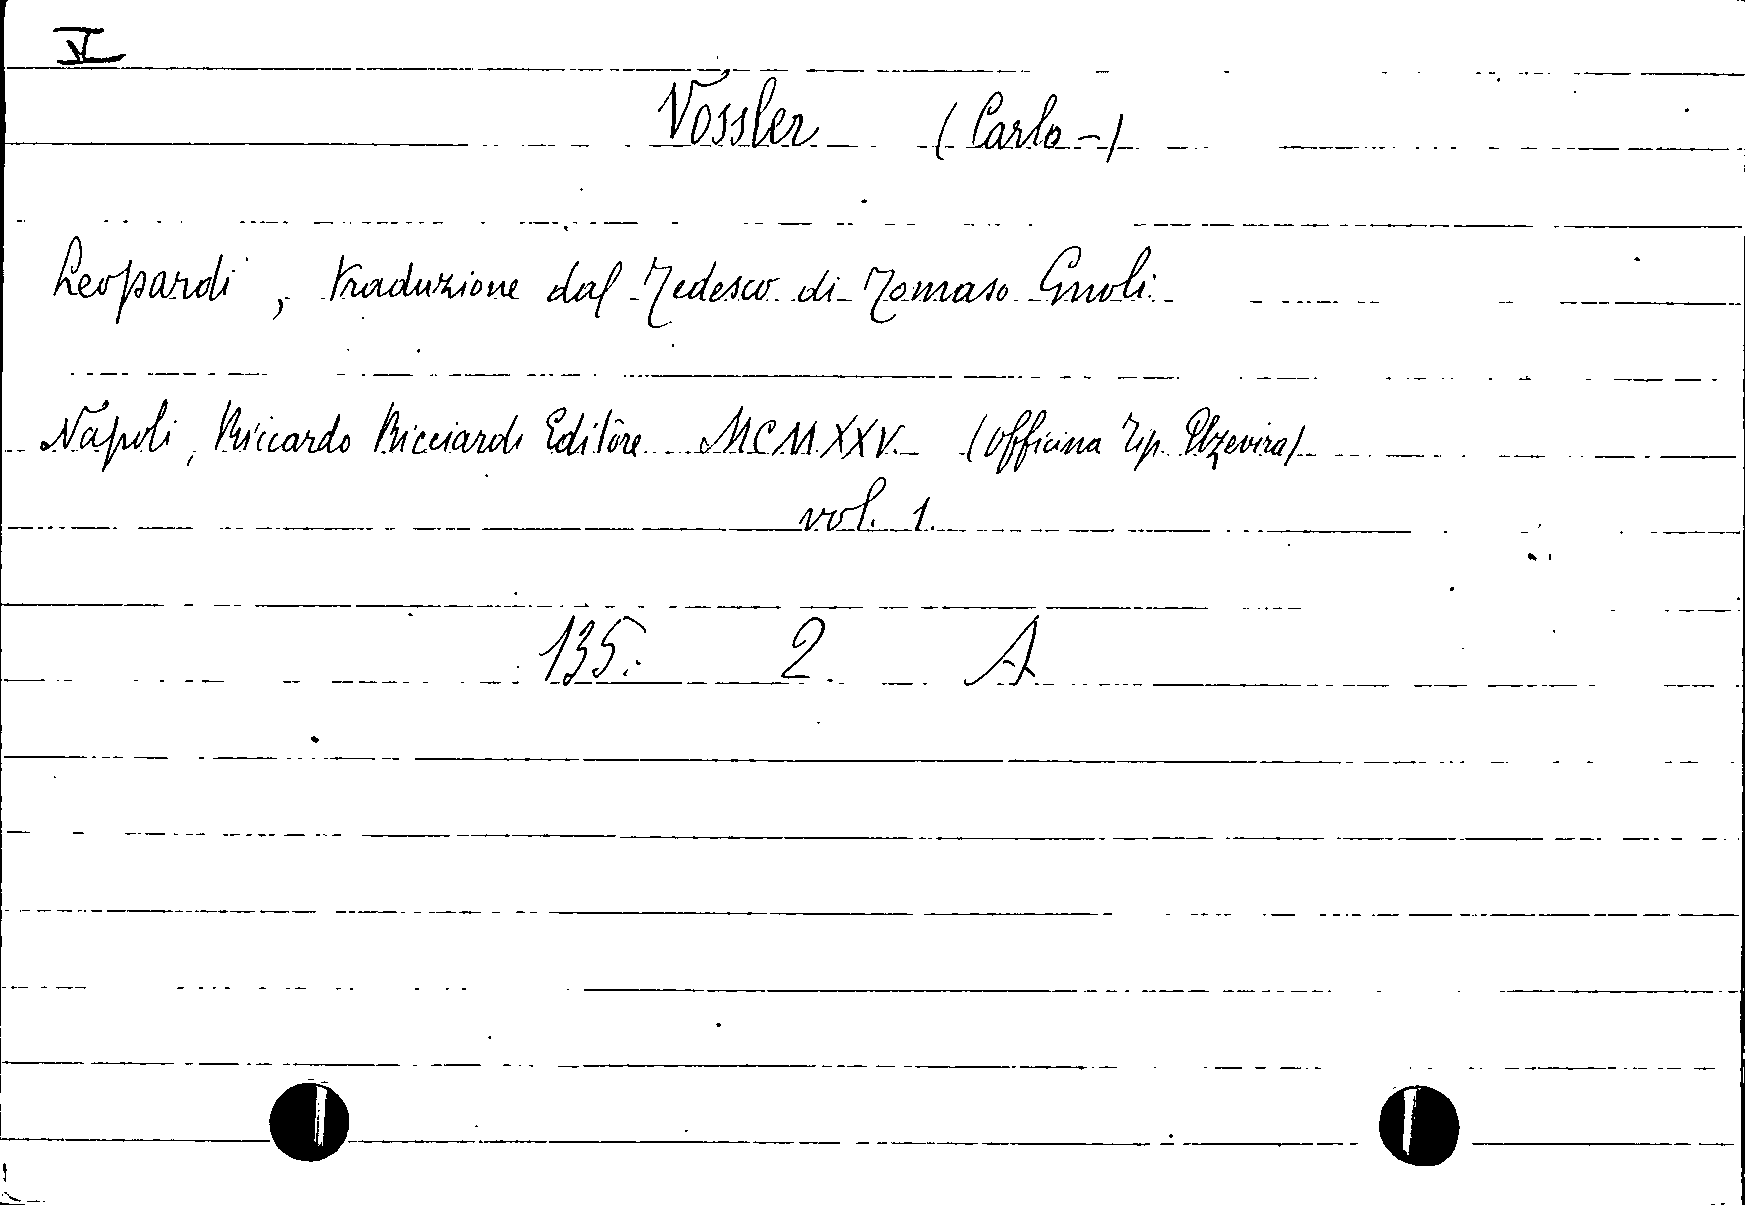 V
Vossler (Carlo-)
Leopardi, traduzione dal Tedesco di Tomaso Gnoli
Napoli, Riccardo Ricciardi Editore MCMXXV (Officina Tip. Elzevira)
vol. 1.
135. 2. A